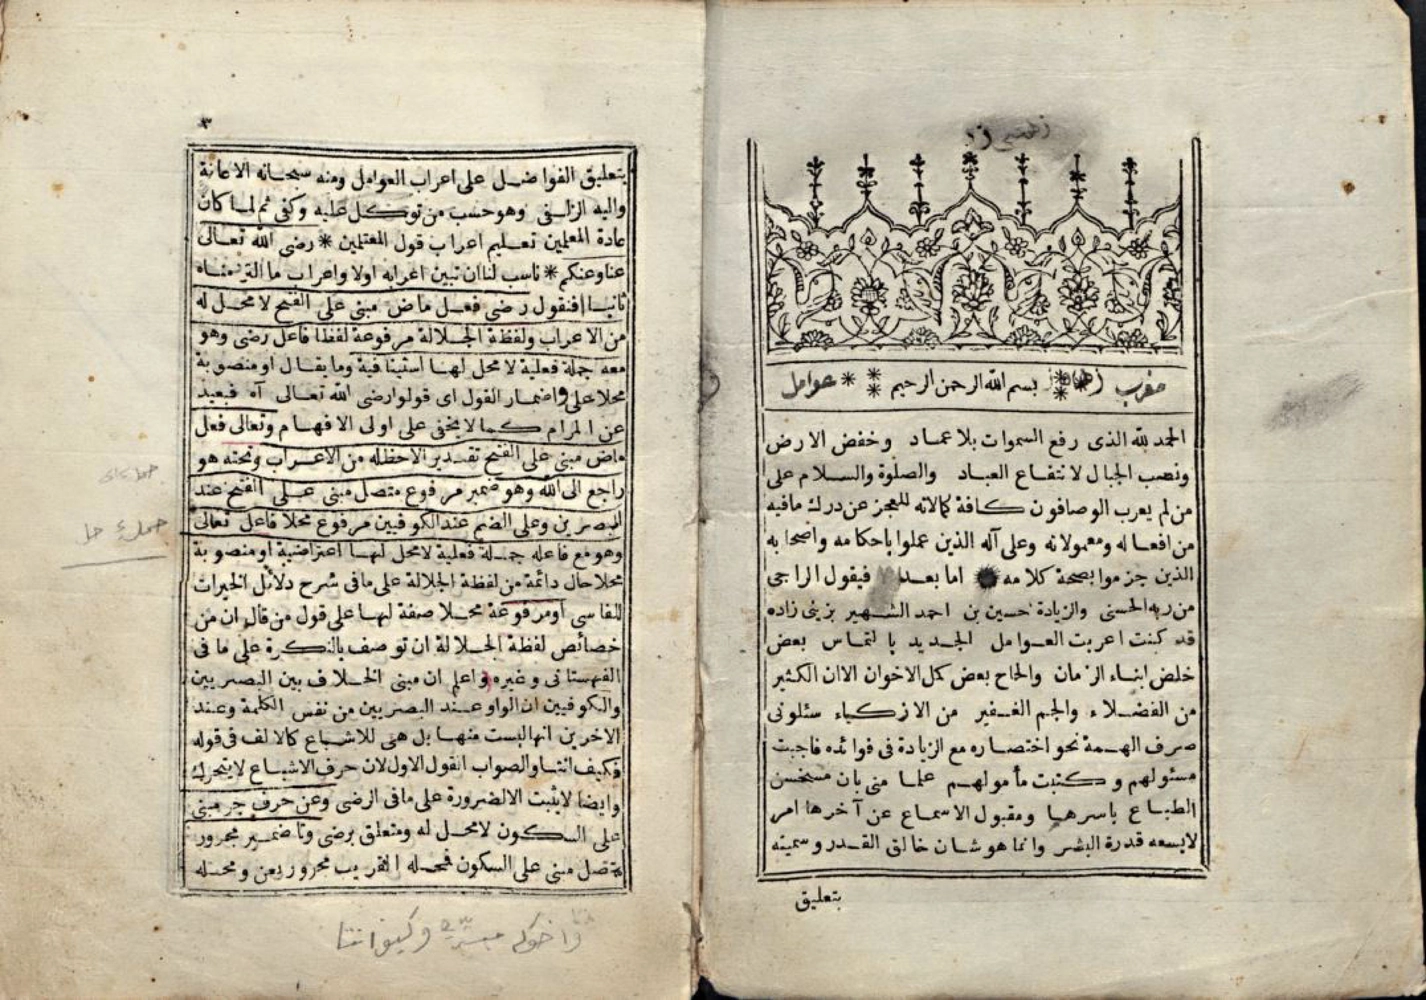 معرب بسم الله الرحمن الرحيم عوامل
الحمد لله الذى رفع السموات بلا عماد وخفض الارض
ونصب الجبال لانتفاع العباد والصلوة والسلام على
من لم يعرب الوصافون كافة كمالاته للعجز عن درك مافيه
من افعاله ومعمولاته وعلى آله الذين عملوا باحكامه واصحابه
الذين جزموا بصحة كلامه اما بعد فيقول الراجى
من ربه الحسنى والزيادة حسين بن احمد الشهير بزينى زاده
قد كنت اعربت العوامل الجديد بالتماس بعض
خلص ابناء الزمان والحاح بعض كمل الاخوان الاان الكثير
من الفضلاء والجم الغفير من الازكياء سئلونى
صرف الهمة نحو اختصاره مع الزيادة فى فوائده فاجبت
مسئولهم وكتبت مأمولهم علما منى بان مستحسن
الطباع باسرها ومقبول الاسماع عن آخرها امر
لايسعه قدرة البشر وانما هو شان خالق القدر وسميته
بتعليق
٣
بتعليق الفواضل على اعراب العوامل ومنه سبحانه الاعانة
واليه الزلفى وهو حسب من توكل عليه وكفى ثم لما كان
عادة المعلمين تعليم اعراب قول المعتلمين * رضى الله تعالى
عنا وعنكم * ناسب لنا ان نبين اعرابه اولا واعراب ما التزمناه
ثانيا فنقول رضى فعل ماض مبنى على الفتح لا محل له
من الاعراب ولفظة الجلالة مرفوعة لفظا فاعل رضى وهو
معه جملة فعلية لا محل لها استينافية وما يقال او منصوبة
محلا على اضمار القول اى قولوا رضى الله تعالى آه فبعيد
عن المرام كما لا يخفى على اولى الافهام وتعالى فعل
ماض مبنى على الفتح تقديرا لاحظله من الاعراب وتحته هو
راجع الى الله وهو ضمير مرفوع متصل مبنى على الفتح عند
البصريين وعلى الضم عند الكوفيين مرفوع محلا فاعل تعالى
وهو مع فاعله جملة فعلية لا محل لها اعتراضية او منصوبة
محلا حال دائمة من لفظة الجلالة على ما فى شرح دلائل الخيرات
للفاسى او مرفوعة محلا صفة لها على قول من قال ان من
خصائص لفظة الجلالة ان توصف بالنكرة على ما فى
القهستانى وغيره واعلم ان مبنى الخلاف بين البصريين
والكوفيين ان الواو عند البصريين من نفس الكلمة وعند
الاخرين انها ليست منها بل هى للاشباع كالالف فى قوله
فكيف انتا والصواب القول الاول لان حرف الاشباع لا يتحرك
وايضا لا يثبت الا لضرورة على ما فى الرضى وعن حرف جر مبنى
على السكون لا محل له ومتعلق برضى ونا ضمير مجرور
متصل مبنى على السكون فمحله القريب مجرور بعن ومحله
وكيف انتا